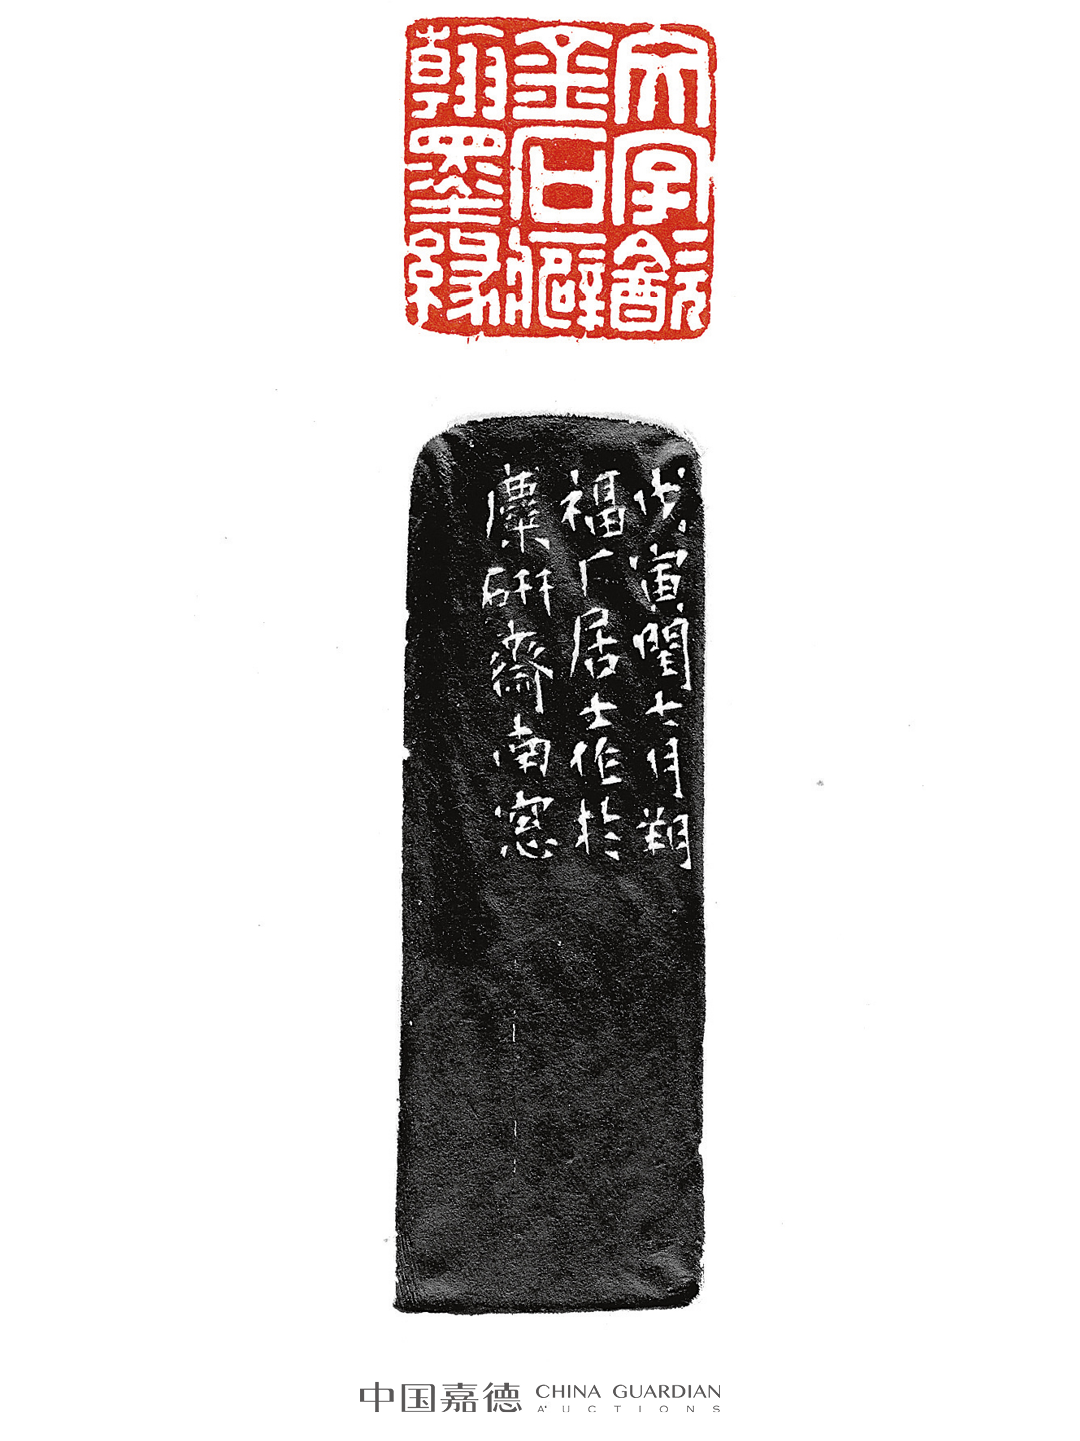 文字飲
金石癖
翰墨緣
戊寅閏七月朔
福厂居士作於
麋硏齋南窻
中国嘉德 CHINA GUARDIAN
AUCTIONS